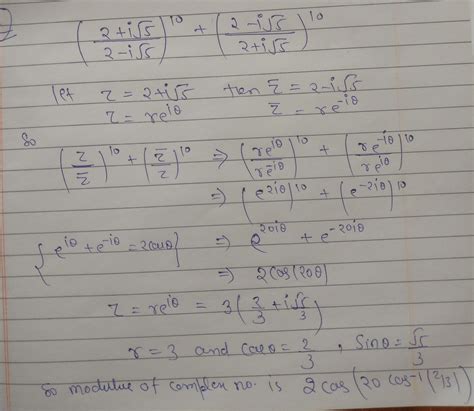 (2+i√5 / 2-i√5)^10 + (2-i√5 / 2+i√5)^10
let z = 2+i√5 then z̄ = 2-i√5
z = re^iθ z̄ = re^-iθ
So
(z/z̄)^10 + (z̄/z)^10 ⇒ (re^iθ / re^-iθ)^10 + (re^-iθ / re^iθ)^10
⇒ (e^2iθ)^10 + (e^-2iθ)^10
{e^iθ + e^-iθ = 2cosθ} ⇒ e^20iθ + e^-20iθ
⇒ 2cos(20θ)
z = re^iθ = 3(2/3 + i√5/3)
r = 3 and cosθ = 2/3, sinθ = √5/3
So modulus of complex no. is 2cos(20 cos^-1(2/3))